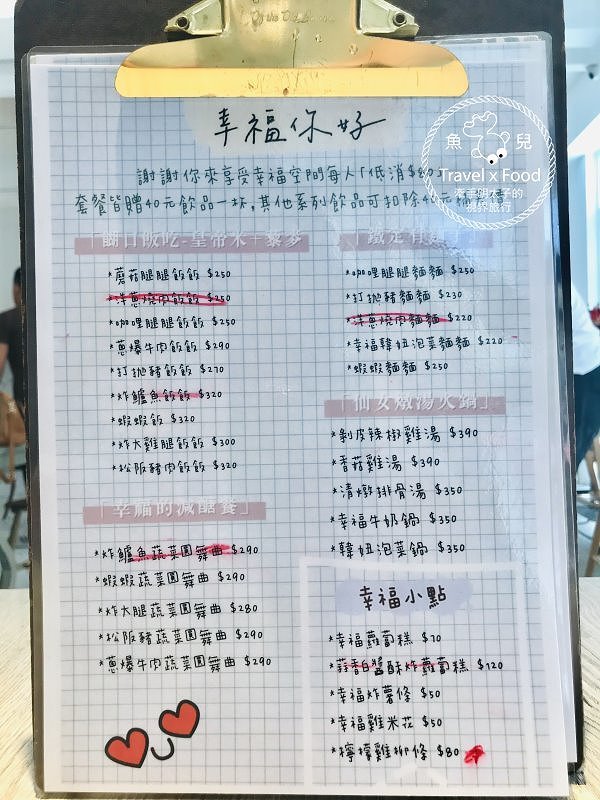 幸福你好
謝謝你來享受幸福空間每人「低消
套餐皆贈40元飲品一杯,其他系列飲品可扣除40元
魚兒
Travel x Food
牽手明太子的
視界旅行
「餬口飯吃-皇帝米+藜麥
*蘑菇腿腿飯飯 $250
*洋蔥燒肉飯飯 $250
*咖哩腿腿飯飯 $250
*蔥爆牛肉飯飯 $290
*打拋豬飯飯飯 $270
*炸鱸魚飯飯 $320
*蝦蝦飯 $320
*炸大雞腿飯飯 $300
*松阪豬肉飯飯 $320
「幸福的減醣餐」
*炸鱸魚蔬菜圓舞曲 $290
*蝦蝦蔬菜圓舞曲 $290
*炸大腿蔬菜圓舞曲 $280
*松阪豬蔬菜圓舞曲 $290
*蔥爆牛肉蔬菜圓舞曲 $290
*咖哩腿腿麵麵 $250
*打拋豬麵麵麵 $230
*洋蔥燒肉麵麵 $220
*幸福韓妞泡菜麵麵 $220
*蝦蝦麵麵 $250
「仙女燉湯火鍋」
*剝皮辣椒雞湯 $390
*香菇雞湯 $390
*清燉排骨湯 $350
*幸福牛奶鍋 $350
*韓妞泡菜鍋 $350
幸福小點
*幸福蘿蔔糕 $70
*蒜香白醬酥炸蘿蔔糕 $120
*幸福炸薯條 $50
*幸福雞米花 $50
*檸檬雞柳條 $80